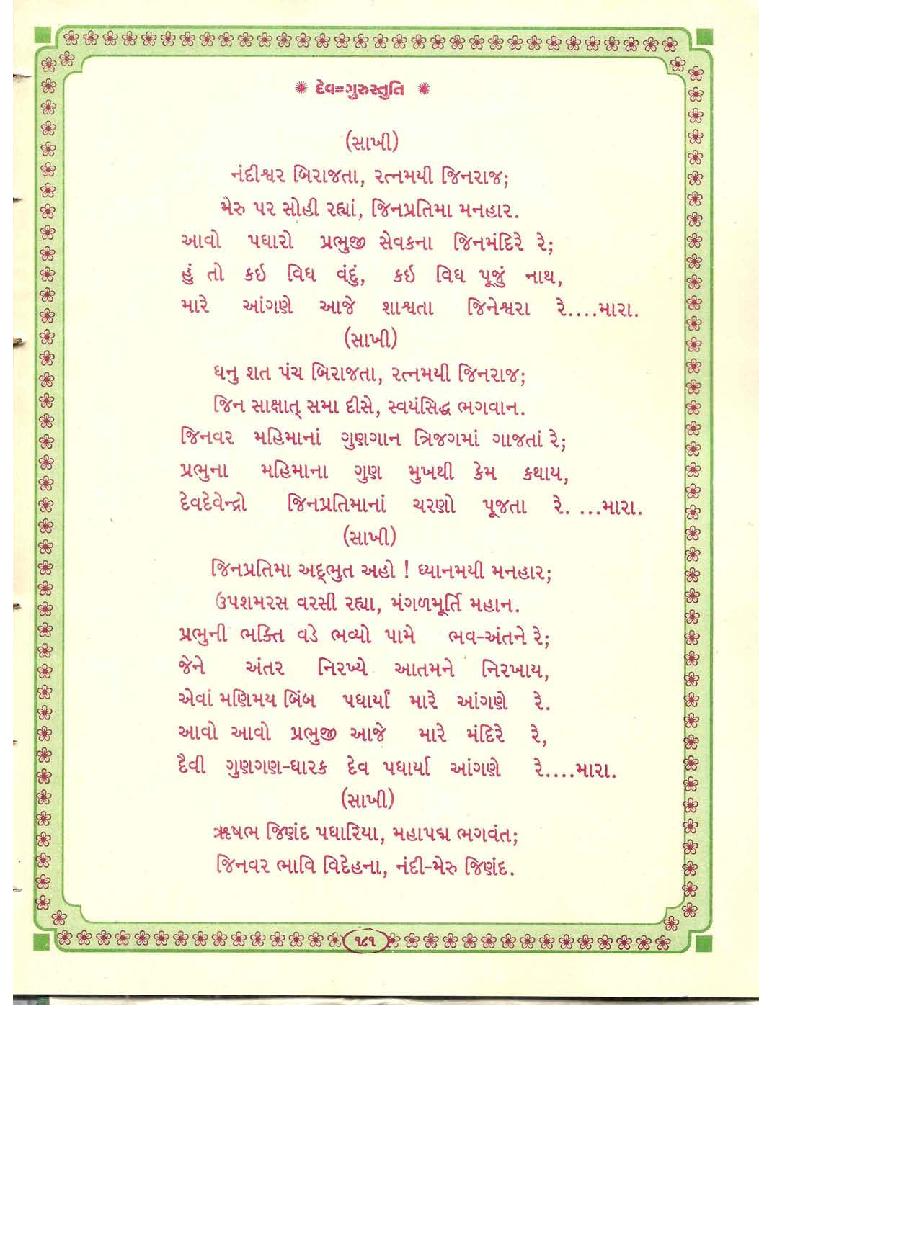 ✹ દેવ=ગુરુસ્તુતિ ✹
(સાખી)
નંદીશ્વર બિરાજતા, રત્નમયી જિનરાજ;
મેરુ પર સોહી રહ્યાં, જિનપ્રતિમા મનહાર.
આવો પધારો પ્રભુજી સેવકના જિનમંદિરે રે;
હું તો કઇ વિધ વંદું, કઇ વિધ પૂજું નાથ,
મારે આંગણે આજે શાશ્વતા જિનેશ્વરા રે....મારા.
(સાખી)
ધનુ શત પંચ બિરાજતા, રત્નમયી જિનરાજ;
જિન સાક્ષાત્ સમા દીસે, સ્વયંસિદ્ધ ભગવાન.
જિનવર મહિમાનાં ગુણગાન ત્રિજગમાં ગાજતાં રે;
પ્રભુના મહિમાના ગુણ મુખથી કેમ કથાય,
દેવદેવેન્દ્રો જિનપ્રતિમાનાં ચરણો પૂજતા રે. ...મારા.
(સાખી)
જિનપ્રતિમા અદ્ભુત અહો ! ધ્યાનમયી મનહાર;
ઉપશમરસ વરસી રહ્યા, મંગળમૂર્તિ મહાન.
પ્રભુની ભક્તિ વડે ભવ્યો પામે ભવ-અંતને રે;
જેને અંતર નિરખ્યે આતમને નિરખાય,
એવાં મણિમય બિંબ પધાર્યાં મારે આંગણે રે.
આવો આવો પ્રભુજી આજે મારે મંદિરે રે,
દૈવી ગુણગણ-ધારક દેવ પધાર્યા આંગણે રે....મારા.
(સાખી)
ઋષભ જિણંદ પધારિયા, મહાપદ્મ ભગવંત;
જિનવર ભાવિ વિદેહના, નંદી-મેરુ જિણંદ.
૧૮૧